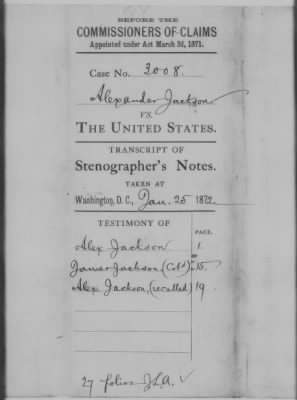 BEFORE THE
COMMISSIONERS OF CLAIMS
Appointed under Act March 3d, 1871.
Case No. 3008.
Alexander Jackson
VS.
THE UNITED STATES.
TRANSCRIPT OF
Stenographer's Notes.
TAKEN AT
Washington, D. C., Jan. 25 1872.
TESTIMONY OF
PAGE.
Alex Jackson 1.
James Jackson, (Col'd) 15.
Alex Jackson, (recalled) 19
27 folios J.L.A.